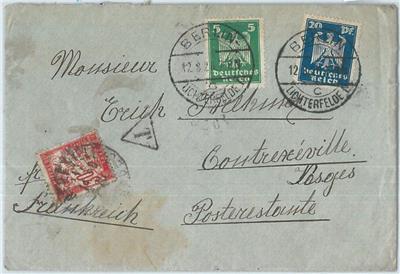 5
Deutsches
Reich
20 Pf.
Deutsches
Reich
BERLIN
12.8.2
LICHTERFELDE
BERLIN
12.
C
LICHTERFELDE
Monsieur
Erich
T
Contrexéville
Vosges
p/
Frankreich
Posterestante